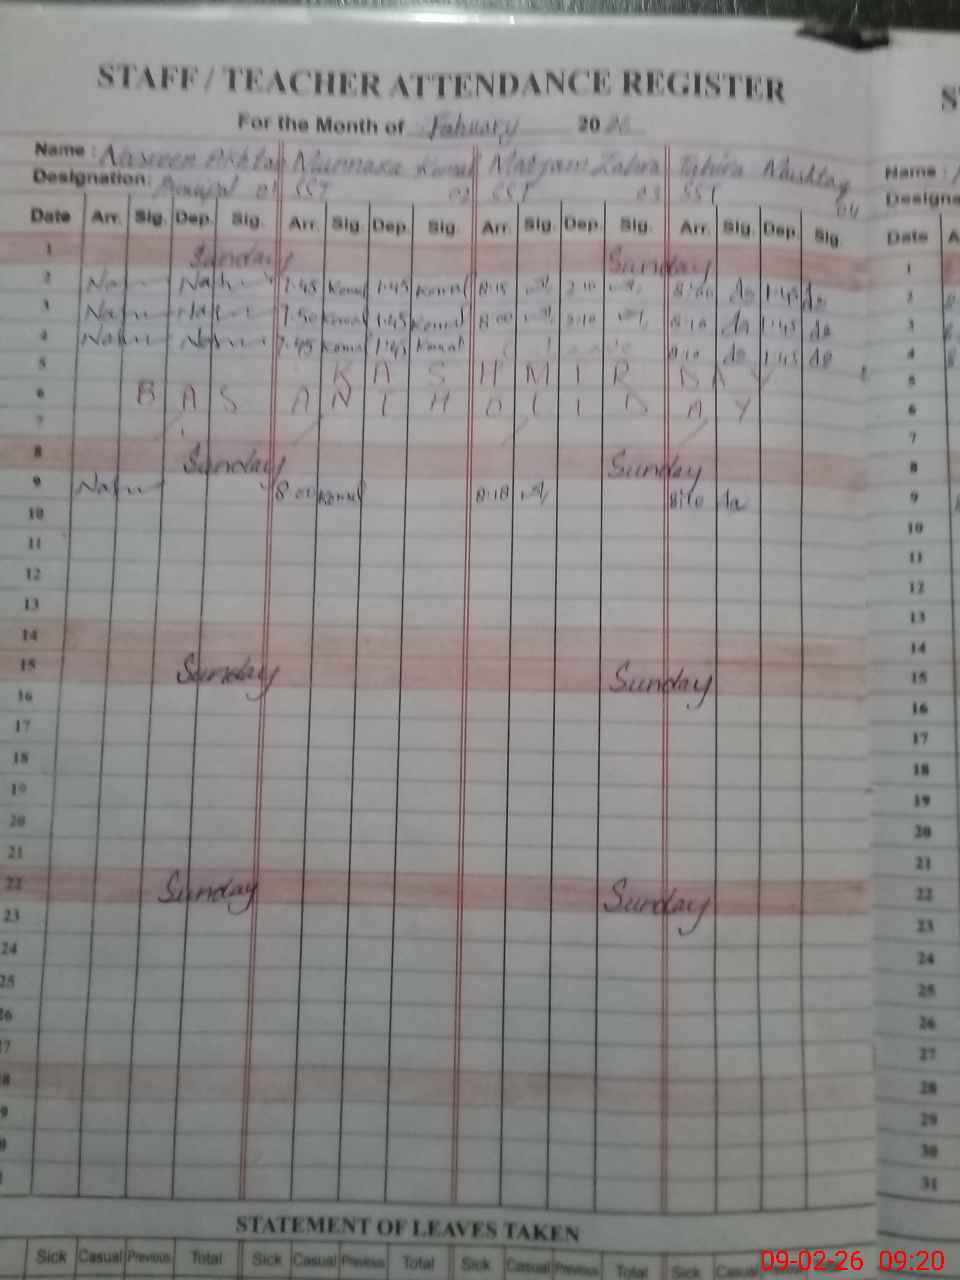 STAFF / TEACHER ATTENDANCE REGISTER
For the Month of 20 26
Name : Nasreen Akhtar Munnaza Komal Maryam Zahra Tahira Mushtaq
Designation: 01 SST 02 SST 03 SST 04
Date Arr. Sig. Dep. Sig. Arr. Sig. Dep. Sig. Arr. Sig. Dep. Sig. Arr. Sig. Dep. Sig.
1 Sunday Sunday
2 7:45 Komal 1:45 Komal 8:15 2:10 8:00 do 1:45 do
3 7:50 Komal 1:45 Komal 8:00 2:10 8:10 do 1:45 do
4 7:45 Komal 1:45 Komal 8:10 do 1:45 do
5 K A S H M I R D A Y
6 B A S A N T H O L I D A Y
7
8 Sunday Sunday
9 8:00 Komal 8:18 8:10 do
10
11
12
13
14
15 Sunday Sunday
16
17
18
19
20
21
22 Sunday Sunday
23
24
25
26
27
28
29
30
31
STATEMENT OF LEAVES TAKEN
Sick Casual Previous Total Sick Casual Previous Total Sick Casual Previous Total Sick Casual
Name :
Designa
Date A
1
2
3
4
5
6
7
8
9
10
11
12
13
14
15
16
17
18
19
20
21
22
23
24
25
26
27
28
29
30
31
09-02-26 09:20